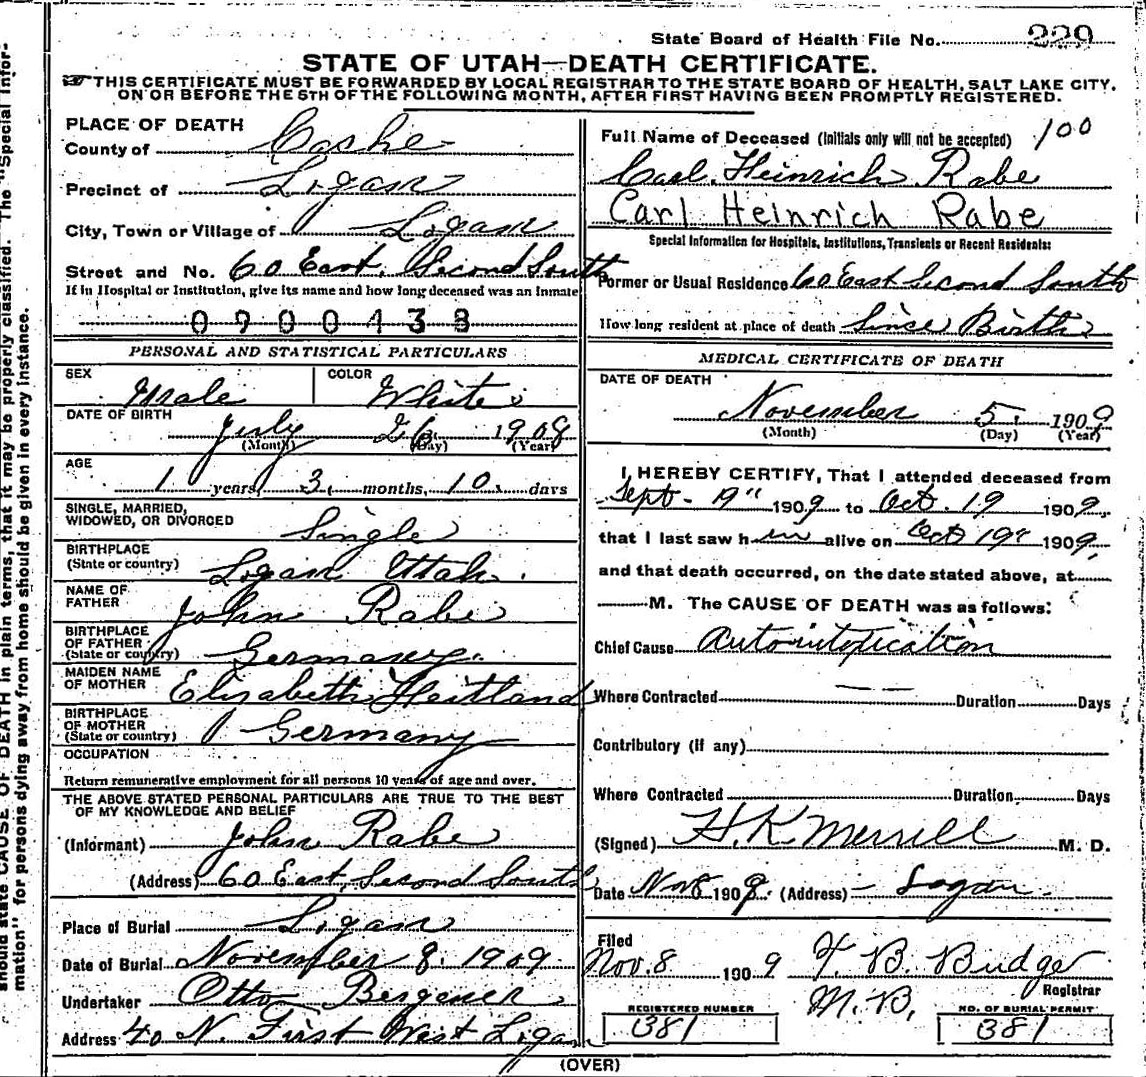 State Board of Health File No. 229
STATE OF UTAH—DEATH CERTIFICATE.
☞THIS CERTIFICATE MUST BE FORWARDED BY LOCAL REGISTRAR TO THE STATE BOARD OF HEALTH, SALT LAKE CITY,
ON OR BEFORE THE 5TH OF THE FOLLOWING MONTH, AFTER FIRST HAVING BEEN PROMPTLY REGISTERED.
PLACE OF DEATH
County of Cashe
Precinct of Logan
City, Town or Village of Logan
Street and No. 60 East, Second South
If in Hospital or Institution, give its name and how long deceased was an inmate
0900438
PERSONAL AND STATISTICAL PARTICULARS
SEX Male COLOR White
DATE OF BIRTH
July 26 1908
(Month) (Day) (Year)
AGE
1 years, 3 months, 10 days
SINGLE, MARRIED,
WIDOWED, OR DIVORCED Single
BIRTHPLACE
(State or country) Logan Utah.
NAME OF
FATHER John Rabe
BIRTHPLACE
OF FATHER
(State or country) Germany.
MAIDEN NAME
OF MOTHER Elizabeth Heitland
BIRTHPLACE
OF MOTHER
(State or country) Germany
OCCUPATION
Return remunerative employment for all persons 10 years of age and over.
THE ABOVE STATED PERSONAL PARTICULARS ARE TRUE TO THE BEST
OF MY KNOWLEDGE AND BELIEF
(Informant) John Rabe
(Address) 60 East, Second South
Place of Burial Logan
Date of Burial November 8, 1909
Undertaker Otto Bergener
Address 40 N. First West Logan
Full Name of Deceased (Initials only will not be accepted) 100
Carl Heinrich Rabe
Carl Heinrich Rabe
Special Information for Hospitals, Institutions, Transients or Recent Residents:
Former or Usual Residence 60 East Second South
How long resident at place of death Since Birth
MEDICAL CERTIFICATE OF DEATH
DATE OF DEATH
November 5, 1909
(Month) (Day) (Year)
I, HEREBY CERTIFY, That I attended deceased from
Sept - 19" 1909 to Oct. 19 1909,
that I last saw him alive on Oct 19" 1909,
and that death occurred, on the date stated above, at
M. The CAUSE OF DEATH was as follows:
Chief Cause Autointoxication
Where Contracted Duration Days
Contributory (if any)
Where Contracted Duration Days
(Signed) H. K. Merrill M. D.
Date Nov 8 1909. (Address) - Logan.
Filed
Nov. 8 1909 F. B. Budge
Registrar
M. B.
REGISTERED NUMBER
381
NO. OF BURIAL PERMIT
381
(OVER)
should state CAUSE OF DEATH in plain terms, that it may be properly classified. The "Special Infor-
mation" for persons dying away from home should be given in every instance.